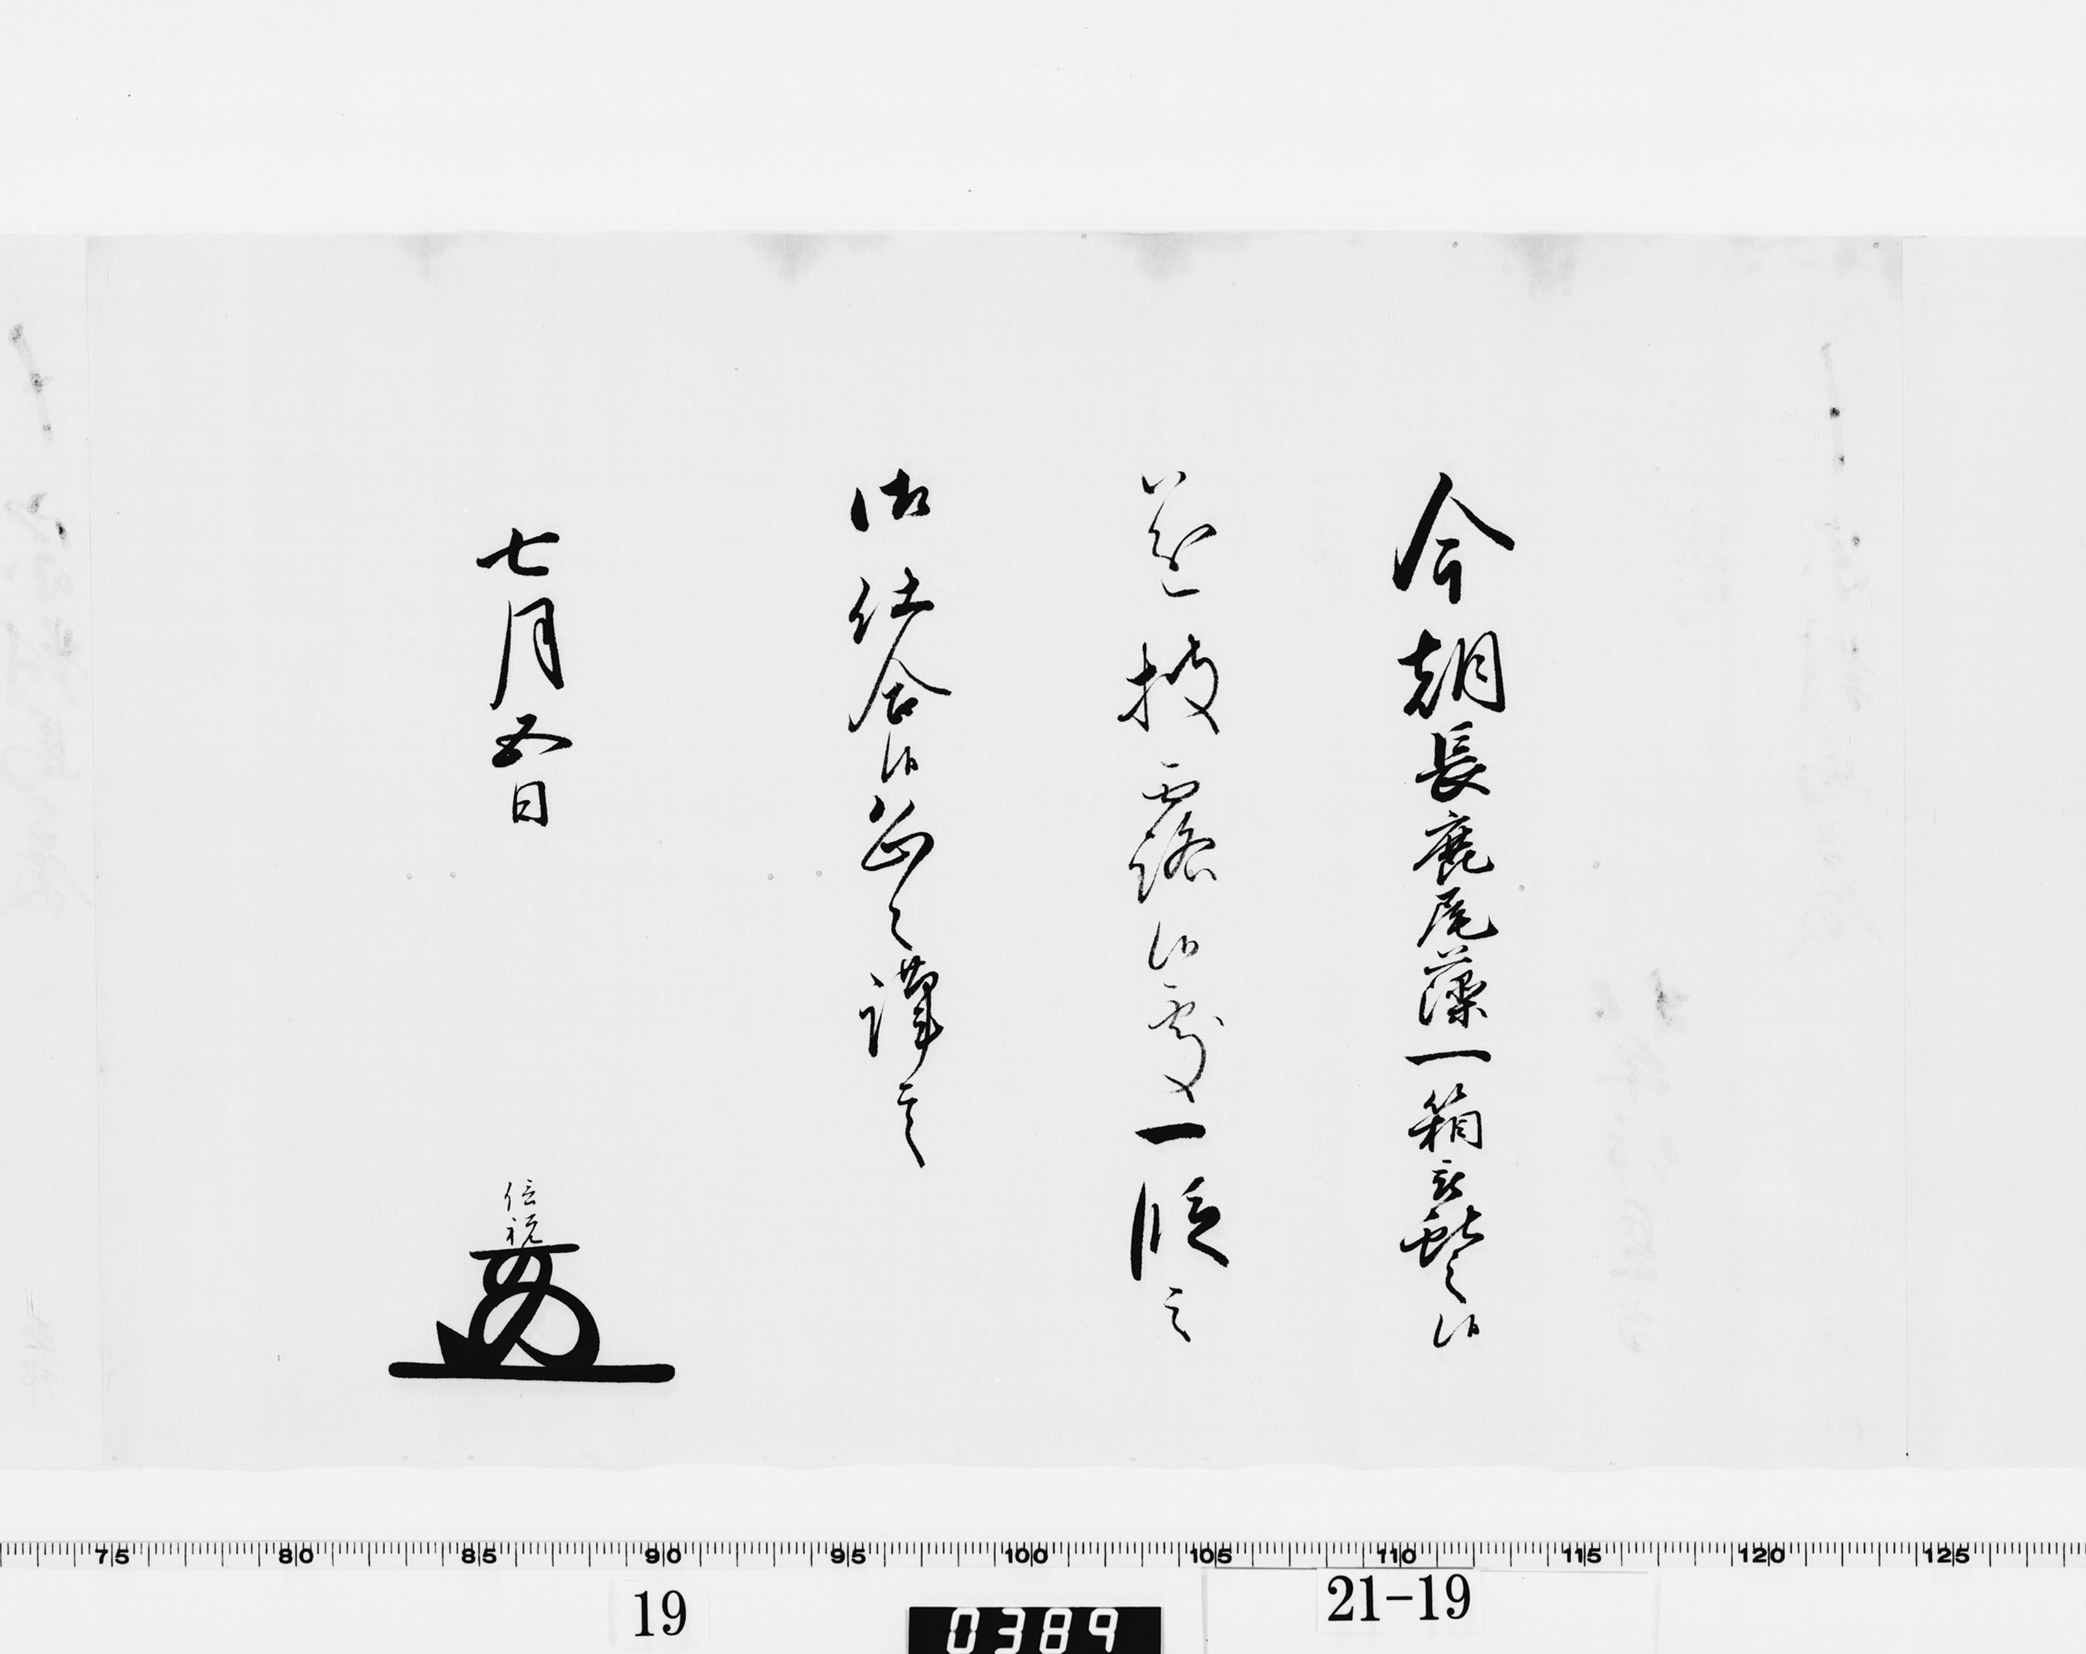 今朝長鹿尾藻一箱被献之候
遂披露候處一段之
御仕合候恐々謹言
七月五日
信祝
75 80 85 90 95 100 105 110 115 120 125
19
0389
21-19